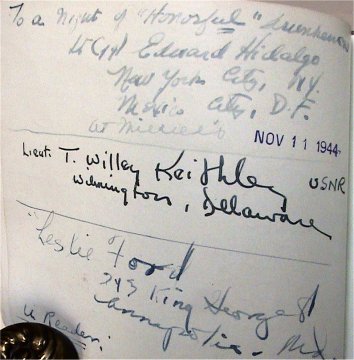 To a night of "Honorful" drunkenness
Lt (jg) Edward Hidalgo
New York City, N.Y.
Mexico City, D.F.
at
NOV 11 1944
Lieut. T. Willey Keithley USNR
Wilmington, Delaware
"Leslie Ford"
243 King George St
Annapolis. Md.
a Reader;